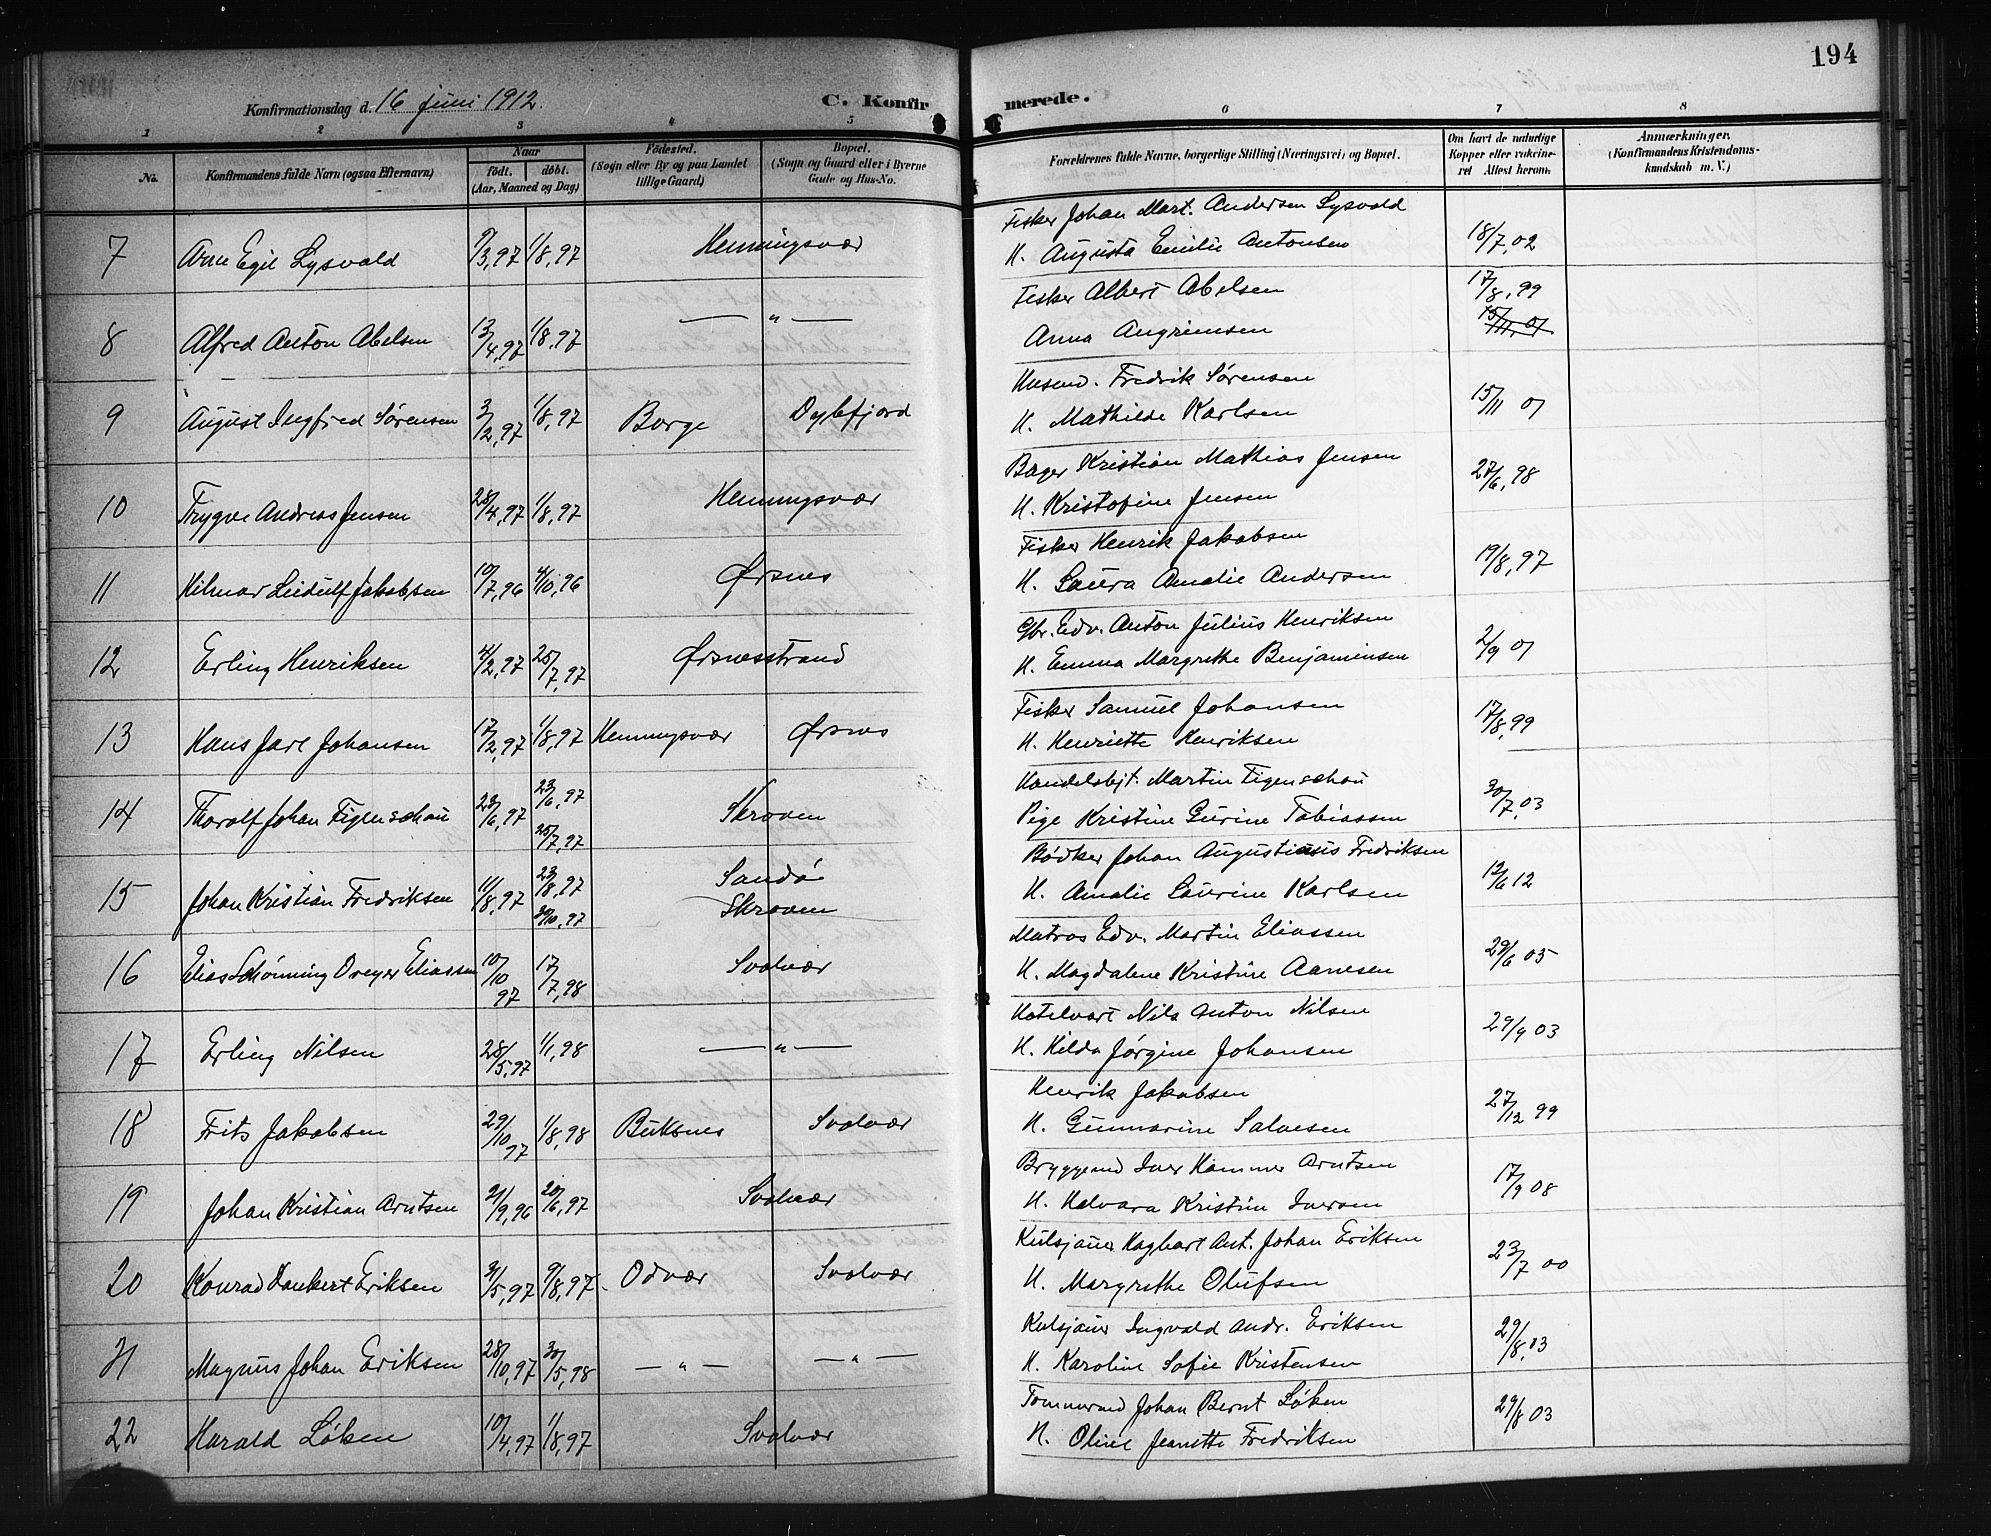 194
Konfirmationsdag d. 16 juni 1912.
C. Konfirmerede.
1 2 3 4 5 6 7 8
No.
Konfirmandens fulde Navn (ogsaa Efternavn)
Naar
födt. döbt.
(Aar, Maaned og Dag)
Födested.
(Sogn eller By og paa Landet
tillige Gaard)
Bopæl.
(Sogn og Gaard eller i Byerne
Gade og Hus-No.
Forældrenes fulde Navne, borgerlige Stilling (Næringsvei) og Bopæl.
Om havt de naturlige
Kopper eller vakcine-
ret Attest herom.
Anmærkninger.
(Konfirmandens Kristendoms-
kundskab m. V.)
Fisker Johan Mart. Andersen Lysvold
7 Arne Egil Lysvold 9/3,97 1/8,97 Henningsvær H. Augusta Emilie Antonsen 18/7,02
Fisker Albert Abelsen 17/8,99
8 Alfred Anton Abelsen 13/4,97 1/8,97 — " — Anna Angrimsen 15/11,01
Husmd. Fredrik Sørensen
9 August Ingfred Sørensen 3/2,97 1/8,97 Borge Dybfjord H. Mathilde Karlsen 15/11 01
Bager Kristian Mathias Jensen
10 Trygve Andreas Jensen 28/4,97 1/8,97 Henningsvær H. Kristofine Jensen 27/6,98
Fisker Henrik Jakobsen
11 Hilmar Leidulf Jakobsen 10/7,96 4/10,96 Ørsnes H. Laura Amalie Andersen 19/8,97
Gbr. Edv. Anton Julius Henriksen
12 Erling Henriksen 4/2,97 25/7,97 Ørsnesstrand H. Emma Margrethe Benjaminsen 2/9 01
Fisker Samuel Johansen
13 Hans Jarl Johansen 17/2,97 1/8,97 Henningsvær Ørsnes H. Henriette Henriksen 17/8,99
Handelsbjt. Martin Figenschau
14 Tharolf Johan Figenschau 23/6,97 23/6,97 25/7,97 Skroven Pige Kristine Gurine Tobiassen 30/7,03
Bødker Johan Augustinus Fredriksen
15 Johan Kristian Fredriksen 11/8,97 23/8,97 30/10,97 Sandø Skroven H. Amalie Laurine Karlsen 12/6 12
Matros Edv. Martin Eliassen
16 Elias Schönning Dreyer Eliassen 10/10 97 17/7,98 Svolvær H. Magdalene Kristine Aanesen 29/6 05
Hotelvært Nils Anton Nilsen
17 Erling Nilsen 28/5,97 1/1,98 — " — H. Hilda Jørgine Johansen 29/9 03
Henrik Jakobsen
18 Frits Jakobsen 29/10 97 1/8,98 Buksnes Svolvær H. Gunnarine Salvesen 27/12 99
Bryggemd Iver Hammer Arntsen
19 Johan Kristian Arntsen 21/9,96 20/6,97 Svolvær H. Halvara Kristine Iversen 17/9 08
Kulsjauer Hagbart Ant. Johan Eriksen
20 Konrad Dankert Eriksen 31/5,97 9/8,97 Odvær Svolvær H. Margrethe Olufsen 23/7 00
Kulsjauer Ingvald Andr. Eriksen
21 Magnus Johan Eriksen 28/10,97 30/5,98 — " — — " — H. Karoline Sofie Kristensen 29/8,03
Tømmermd Johan Bernt Løken
22 Harald Løken 10/4,97 1/8,97 Svolvær H. Oline Jeanette Fredriksen 29/8 03